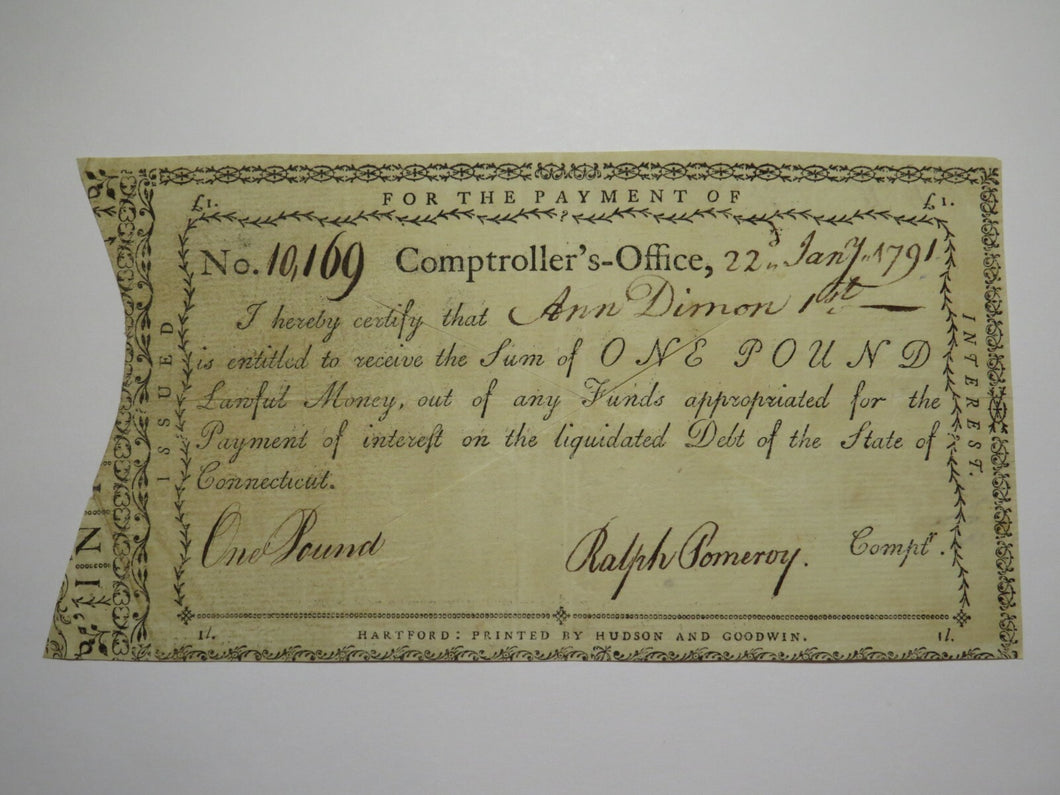 FOR THE PAYMENT OF
£1. £1.
No. 10,169 Comptroller's-Office, 22d Jany. 1791
I hereby certify that Ann Dimon 1st
is entitled to receive the Sum of ONE POUND
Lawful Money, out of any Funds appropriated for the
Payment of intereſt on the liquidated Debt of the State of
Connecticut.
One Pound Ralph Pomeroy. Comptr.
ISSUED
INTEREST.
1l. HARTFORD: PRINTED BY HUDSON AND GOODWIN. 1l.
IN